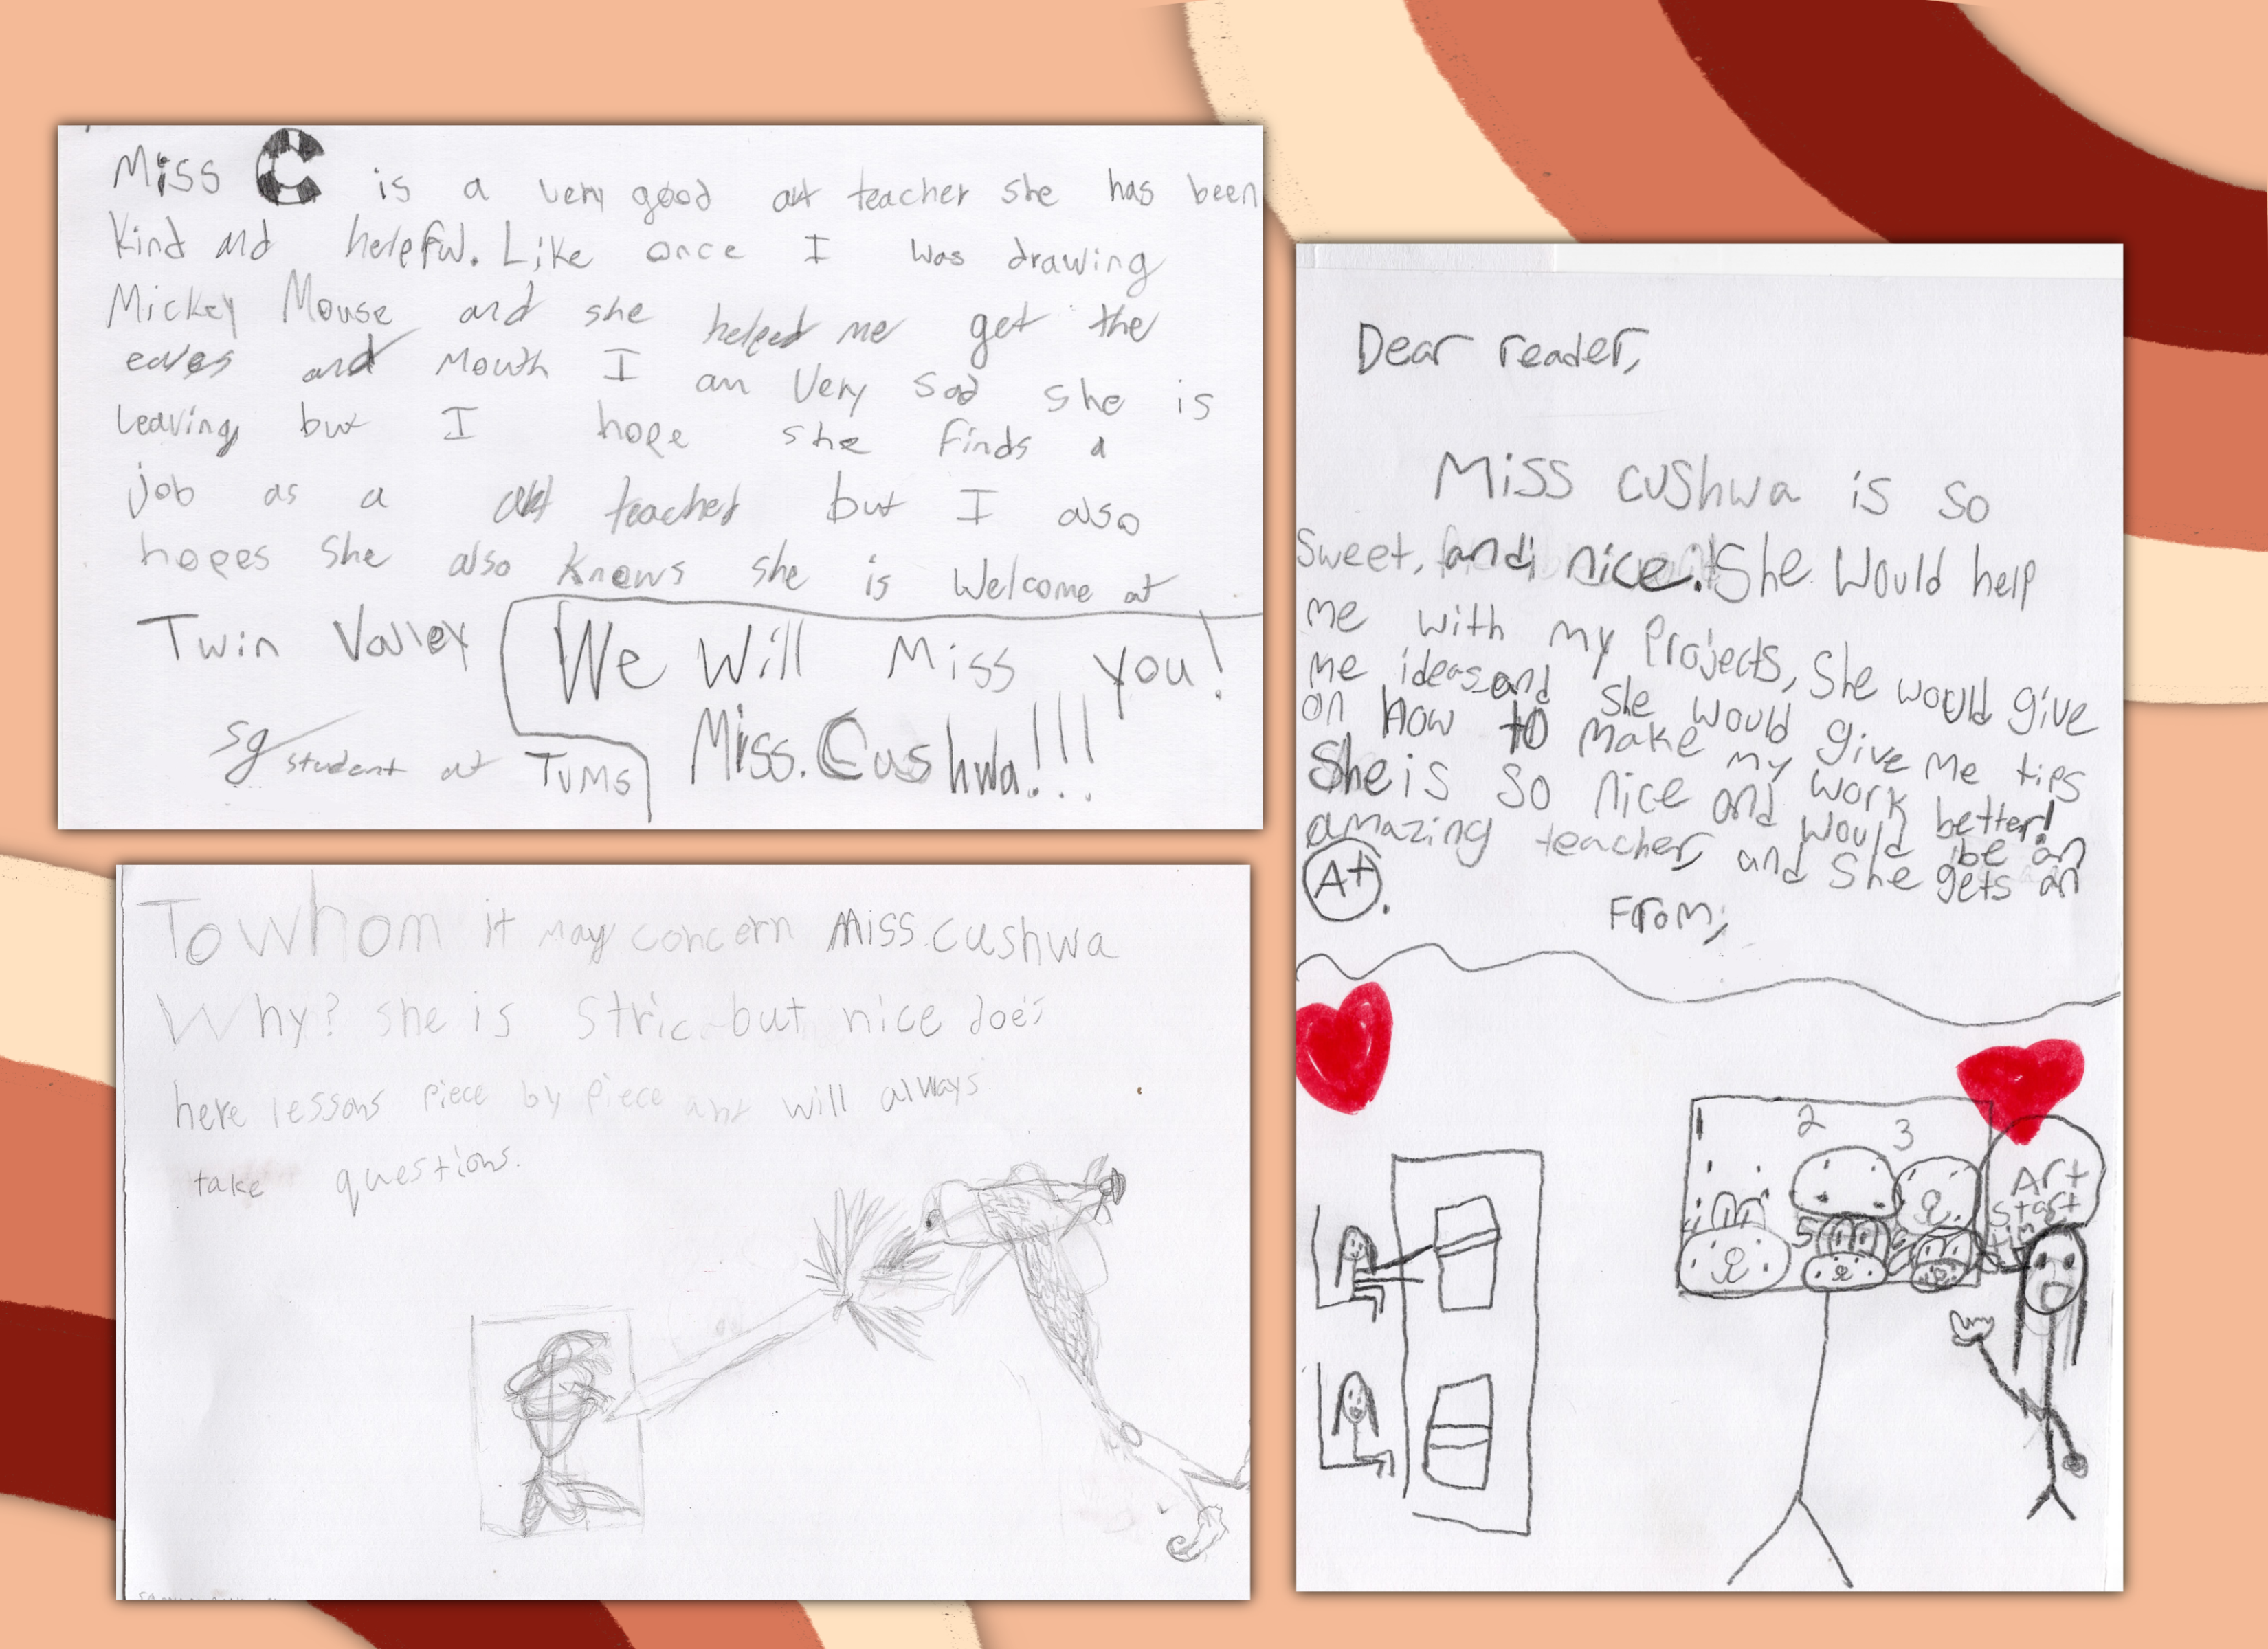 Miss C is a very good art teacher she has been
kind and helpful. Like once I was drawing
Mickey Mouse and she helped me get the
eares and mouth I am very sad she is
leaving but I hope she finds a
job as a art teacher but I also
hopes she also knows she is welcome at
Twin Valley
We will miss you!
Miss. Cushwa!!!
sg student at TVMS
To whom it may concern Miss.cushwa
Why? she is stric but nice does
here lessons piece by piece and will always
take questions.
Dear reader,
Miss cushwa is so
sweet, and nice. She would help
me with my projects, She would give
me ideas and she would give me tips
on how to make my work better!
She is so nice and would be an
amazing teacher, and She gets an
A+.
From,
1 2 3
4 5
Art
start